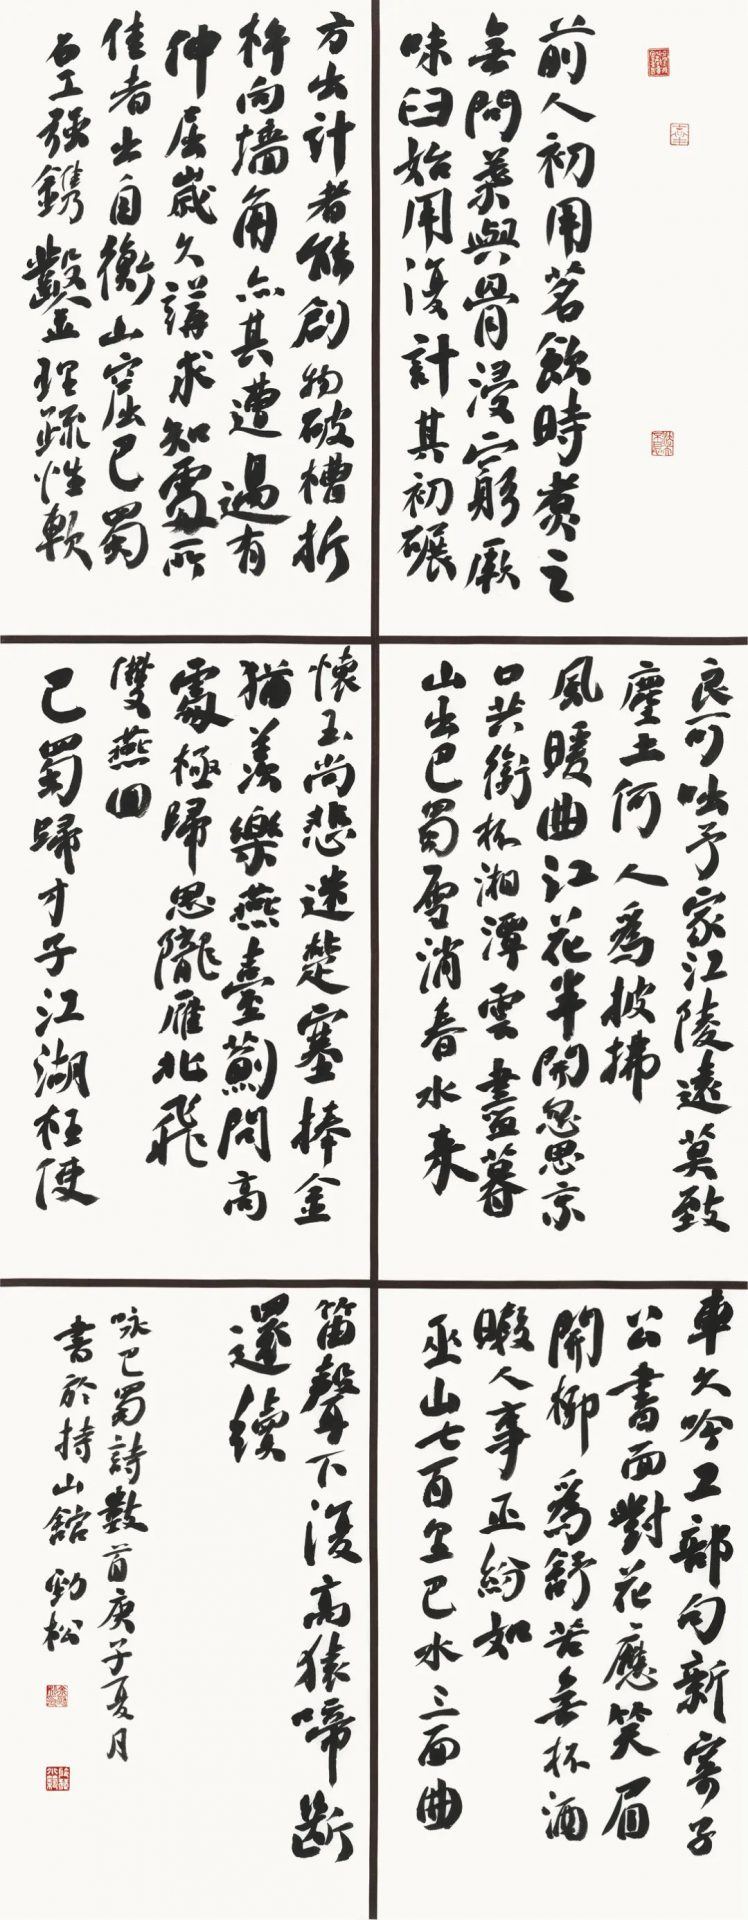 前人初用茗飲時煮之
無問葉與骨浸窮厥
味臼始用復計其初碾
方出計者能創物破槽折
杵向墻角亦其遭遇有
伸屈歲久講求知處所
佳者出自衡山窟巴蜀
石工强鐫鑿理疏性軟
良可咄予家江陵遠莫致
塵土何人爲披拂
風暖曲江花半開忽思京
口共銜杯湘潭雲盡暮
山出巴蜀雪消春水來
懷玉尚悲迷楚塞捧金
猶羨樂燕臺薊問高
處極歸思隴雁北飛
雙燕回
巴蜀歸才子江湖枉使
車久吟工部句新寄子
公書面對花應笑眉
開柳爲舒苦無杯酒
暇人事正紛如
巫山七百里巴水三回曲
笛聲下復高猿啼斷
還續
咏巴蜀詩數首庚子夏月
書於持山館 勁松